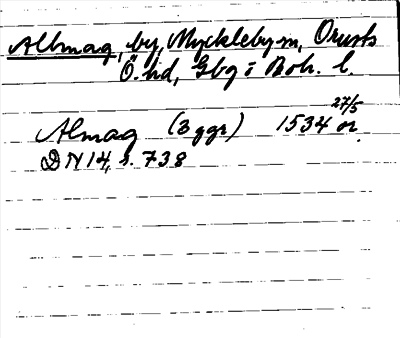 Allmag, by, Myckleby sn, Orusts
Ö. hd, Gbg o Boh. l.
27/5
Almag (3 ggr) 1534 or.
DN 14, s. 738